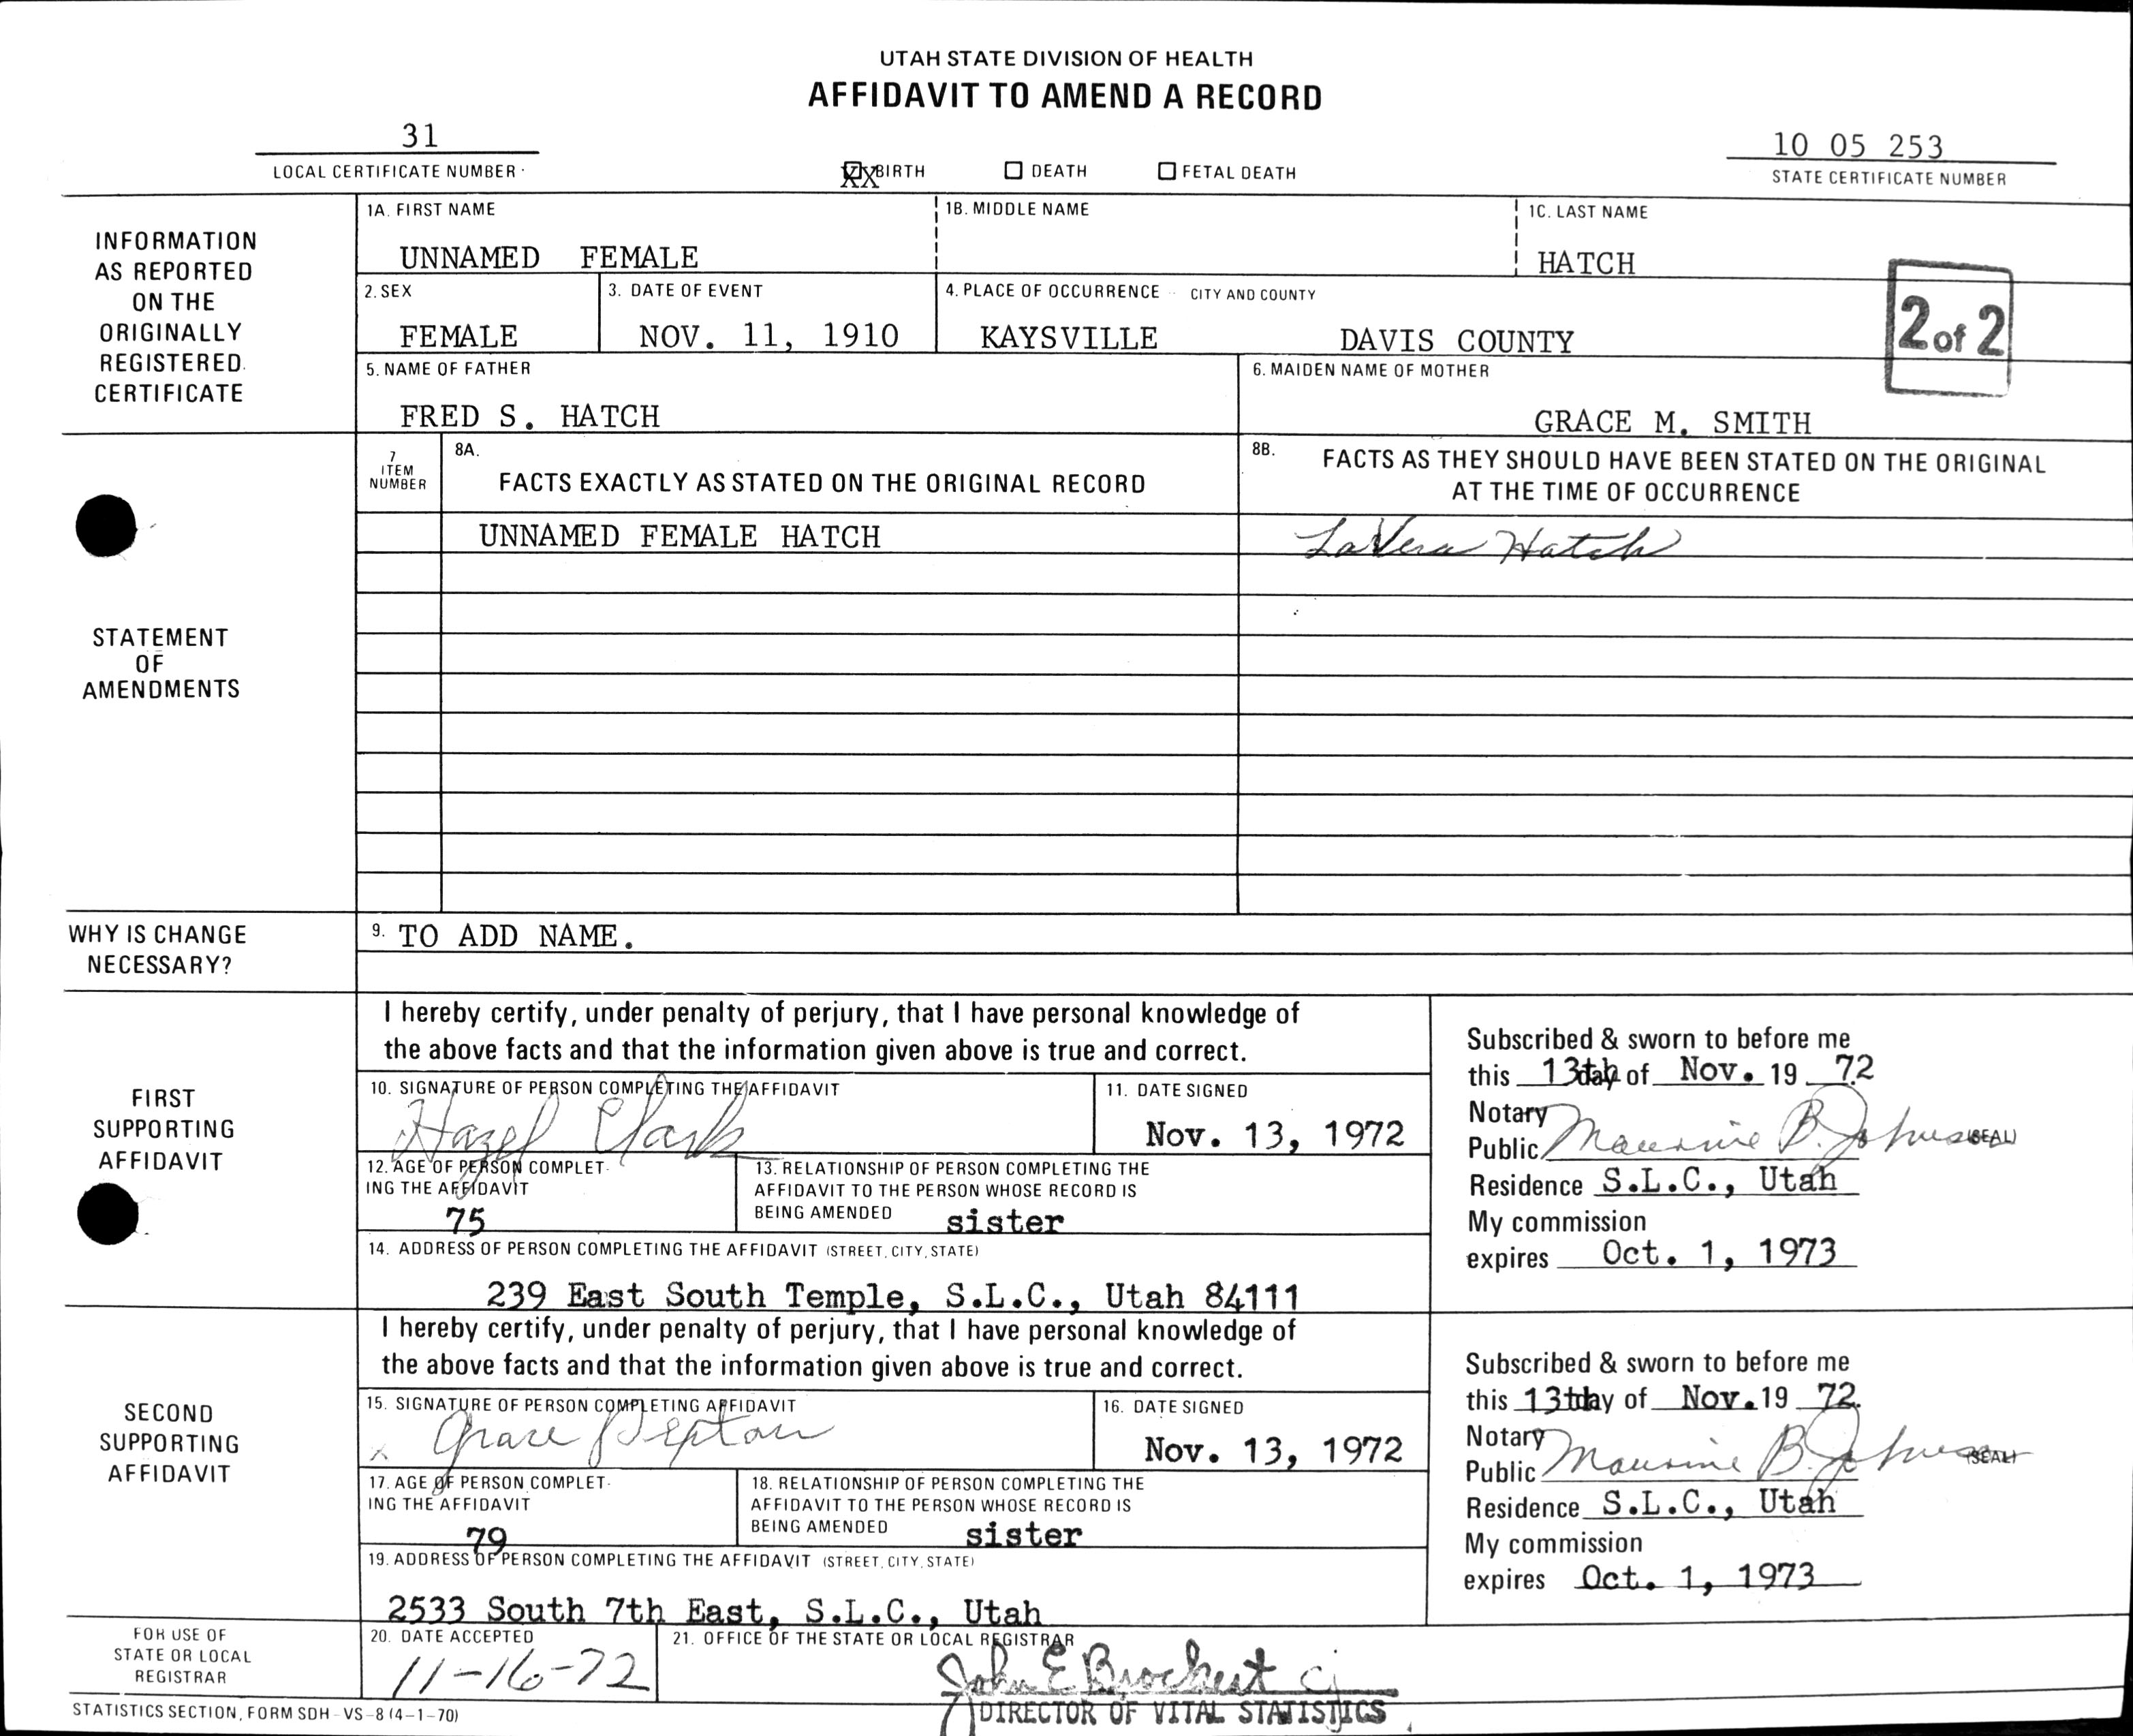 UTAH STATE DIVISION OF HEALTH
AFFIDAVIT TO AMEND A RECORD
31
LOCAL CERTIFICATE NUMBER
XX BIRTH
DEATH
FETAL DEATH
10 05 253
STATE CERTIFICATE NUMBER
INFORMATION
AS REPORTED
ON THE
ORIGINALLY
REGISTERED
CERTIFICATE
1A. FIRST NAME
UNNAMED FEMALE
1B. MIDDLE NAME
1C. LAST NAME
HATCH
2. SEX
FEMALE
3. DATE OF EVENT
NOV. 11, 1910
4. PLACE OF OCCURRENCE - CITY AND COUNTY
KAYSVILLE DAVIS COUNTY
2 of 2
5. NAME OF FATHER
FRED S. HATCH
6. MAIDEN NAME OF MOTHER
GRACE M. SMITH
STATEMENT
OF
AMENDMENTS
7
ITEM
NUMBER
8A.
FACTS EXACTLY AS STATED ON THE ORIGINAL RECORD
8B. FACTS AS THEY SHOULD HAVE BEEN STATED ON THE ORIGINAL
AT THE TIME OF OCCURRENCE
UNNAMED FEMALE HATCH
LaVera Hatch
WHY IS CHANGE
NECESSARY?
9. TO ADD NAME.
FIRST
SUPPORTING
AFFIDAVIT
I hereby certify, under penalty of perjury, that I have personal knowledge of
the above facts and that the information given above is true and correct.
10. SIGNATURE OF PERSON COMPLETING THE AFFIDAVIT
Hazel Clark
11. DATE SIGNED
Nov. 13, 1972
12. AGE OF PERSON COMPLET-
ING THE AFFIDAVIT
75
13. RELATIONSHIP OF PERSON COMPLETING THE
AFFIDAVIT TO THE PERSON WHOSE RECORD IS
BEING AMENDED sister
14. ADDRESS OF PERSON COMPLETING THE AFFIDAVIT (STREET, CITY, STATE)
239 East South Temple, S.L.C., Utah 84111
Subscribed & sworn to before me
this 13th day of Nov. 19 72
Notary
Public Maurine B. Johnson (SEAL)
Residence S.L.C., Utah
My commission
expires Oct. 1, 1973
SECOND
SUPPORTING
AFFIDAVIT
I hereby certify, under penalty of perjury, that I have personal knowledge of
the above facts and that the information given above is true and correct.
15. SIGNATURE OF PERSON COMPLETING AFFIDAVIT
x Grace
16. DATE SIGNED
Nov. 13, 1972
17. AGE OF PERSON COMPLET-
ING THE AFFIDAVIT
79
18. RELATIONSHIP OF PERSON COMPLETING THE
AFFIDAVIT TO THE PERSON WHOSE RECORD IS
BEING AMENDED sister
19. ADDRESS OF PERSON COMPLETING THE AFFIDAVIT (STREET, CITY, STATE)
2533 South 7th East, S.L.C., Utah
Subscribed & sworn to before me
this 13th day of Nov. 19 72
Notary
Public Maurine B. Johnson (SEAL)
Residence S.L.C., Utah
My commission
expires Oct. 1, 1973
FOR USE OF
STATE OR LOCAL
REGISTRAR
20. DATE ACCEPTED
11-16-72
21. OFFICE OF THE STATE OR LOCAL REGISTRAR
John E Brockert cj
DIRECTOR OF VITAL STATISTICS
STATISTICS SECTION, FORM SDH-VS-8 (4-1-70)